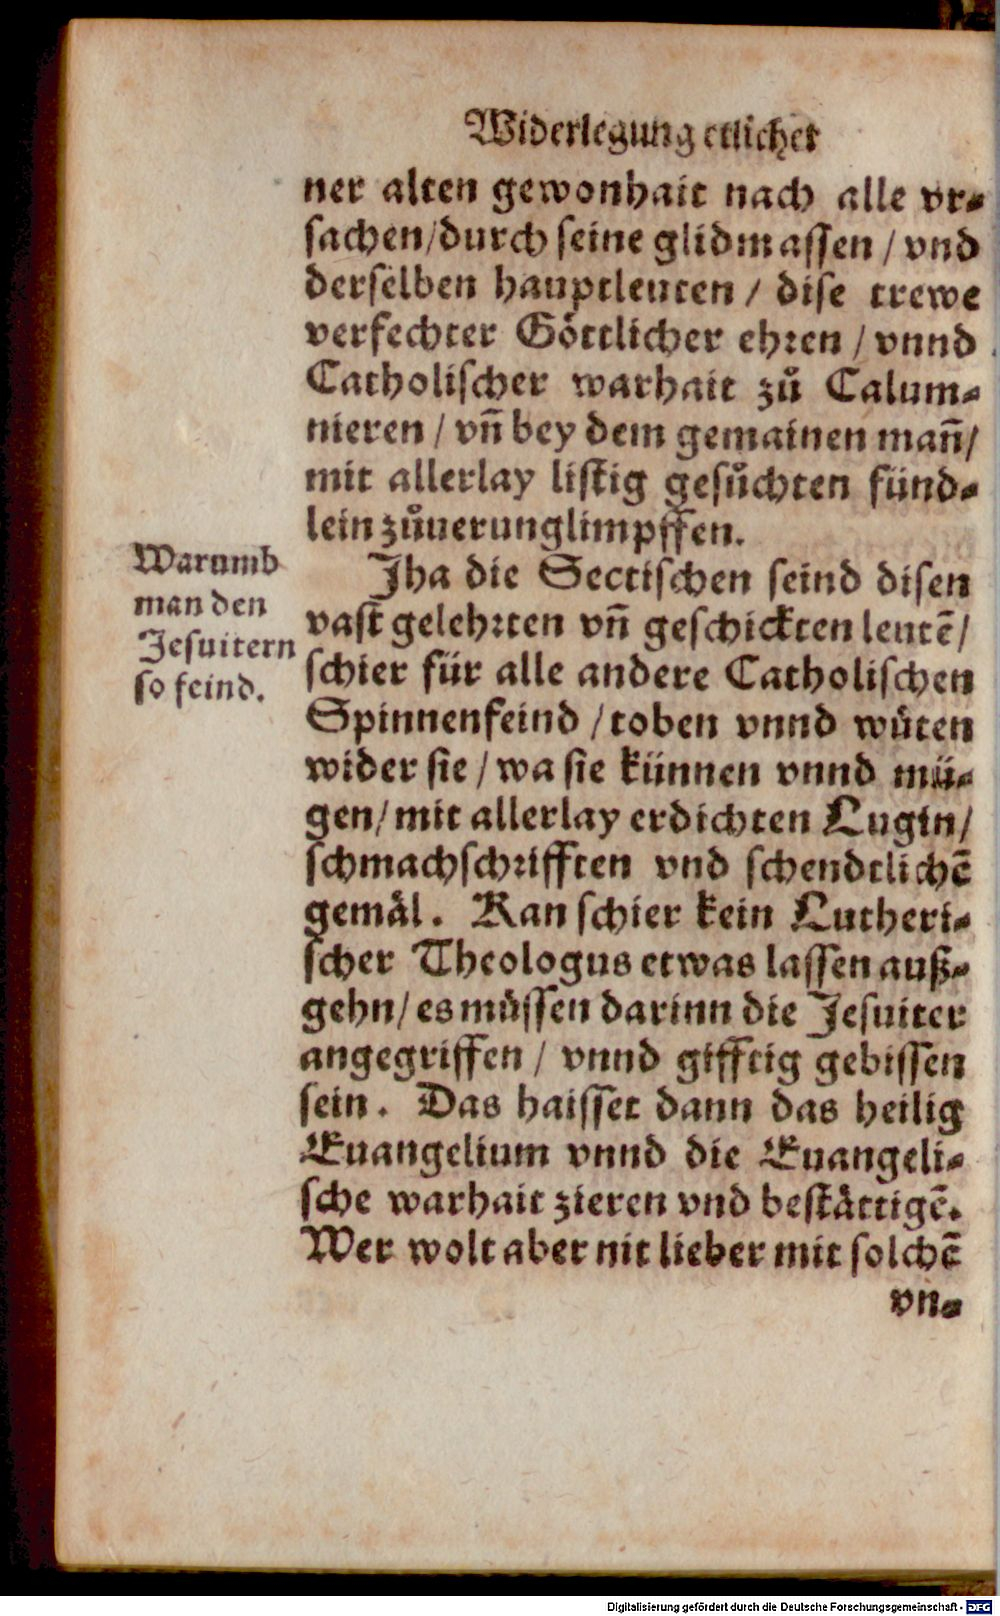 Widerlegung etlicher
ner alten gewonhait nach alle vr⸗
sachen/durch seine glidmassen / vnd
derselben hauptleuten / dise trewe
verfechter Göttlicher ehren / vnnd
Catholischer warhait zů Calum⸗
nieren / vñ bey dem gemainen mañ/
mit allerlay listig gesůchten fünd⸗
lein zůuerunglimpffen.
Warumb
man den
Jesuitern
so feind.
Jha die Sectischen seind disen
vast gelehrten vñ geschickten leutē/
schier für alle andere Catholischen
Spinnenfeind / toben vnnd wüten
wider sie / wa sie künnen vnnd mü⸗
gen/ mit allerlay erdichten Lugin/
schmachschrifften vnd schendtlichē
gemäl. Kan schier kein Lutheri⸗
scher Theologus etwas lassen auß⸗
gehn/ es müssen darinn die Jesuiter
angegriffen / vnnd gifftig gebissen
sein. Das haisset dann das heilig
Euangelium vnnd die Euangeli⸗
sche warhait zieren vnd bestättigē.
Wer wolt aber nit lieber mit solchē
vn⸗
Digitalisierung gefördert durch die Deutsche Forschungsgemeinschaft - DFG